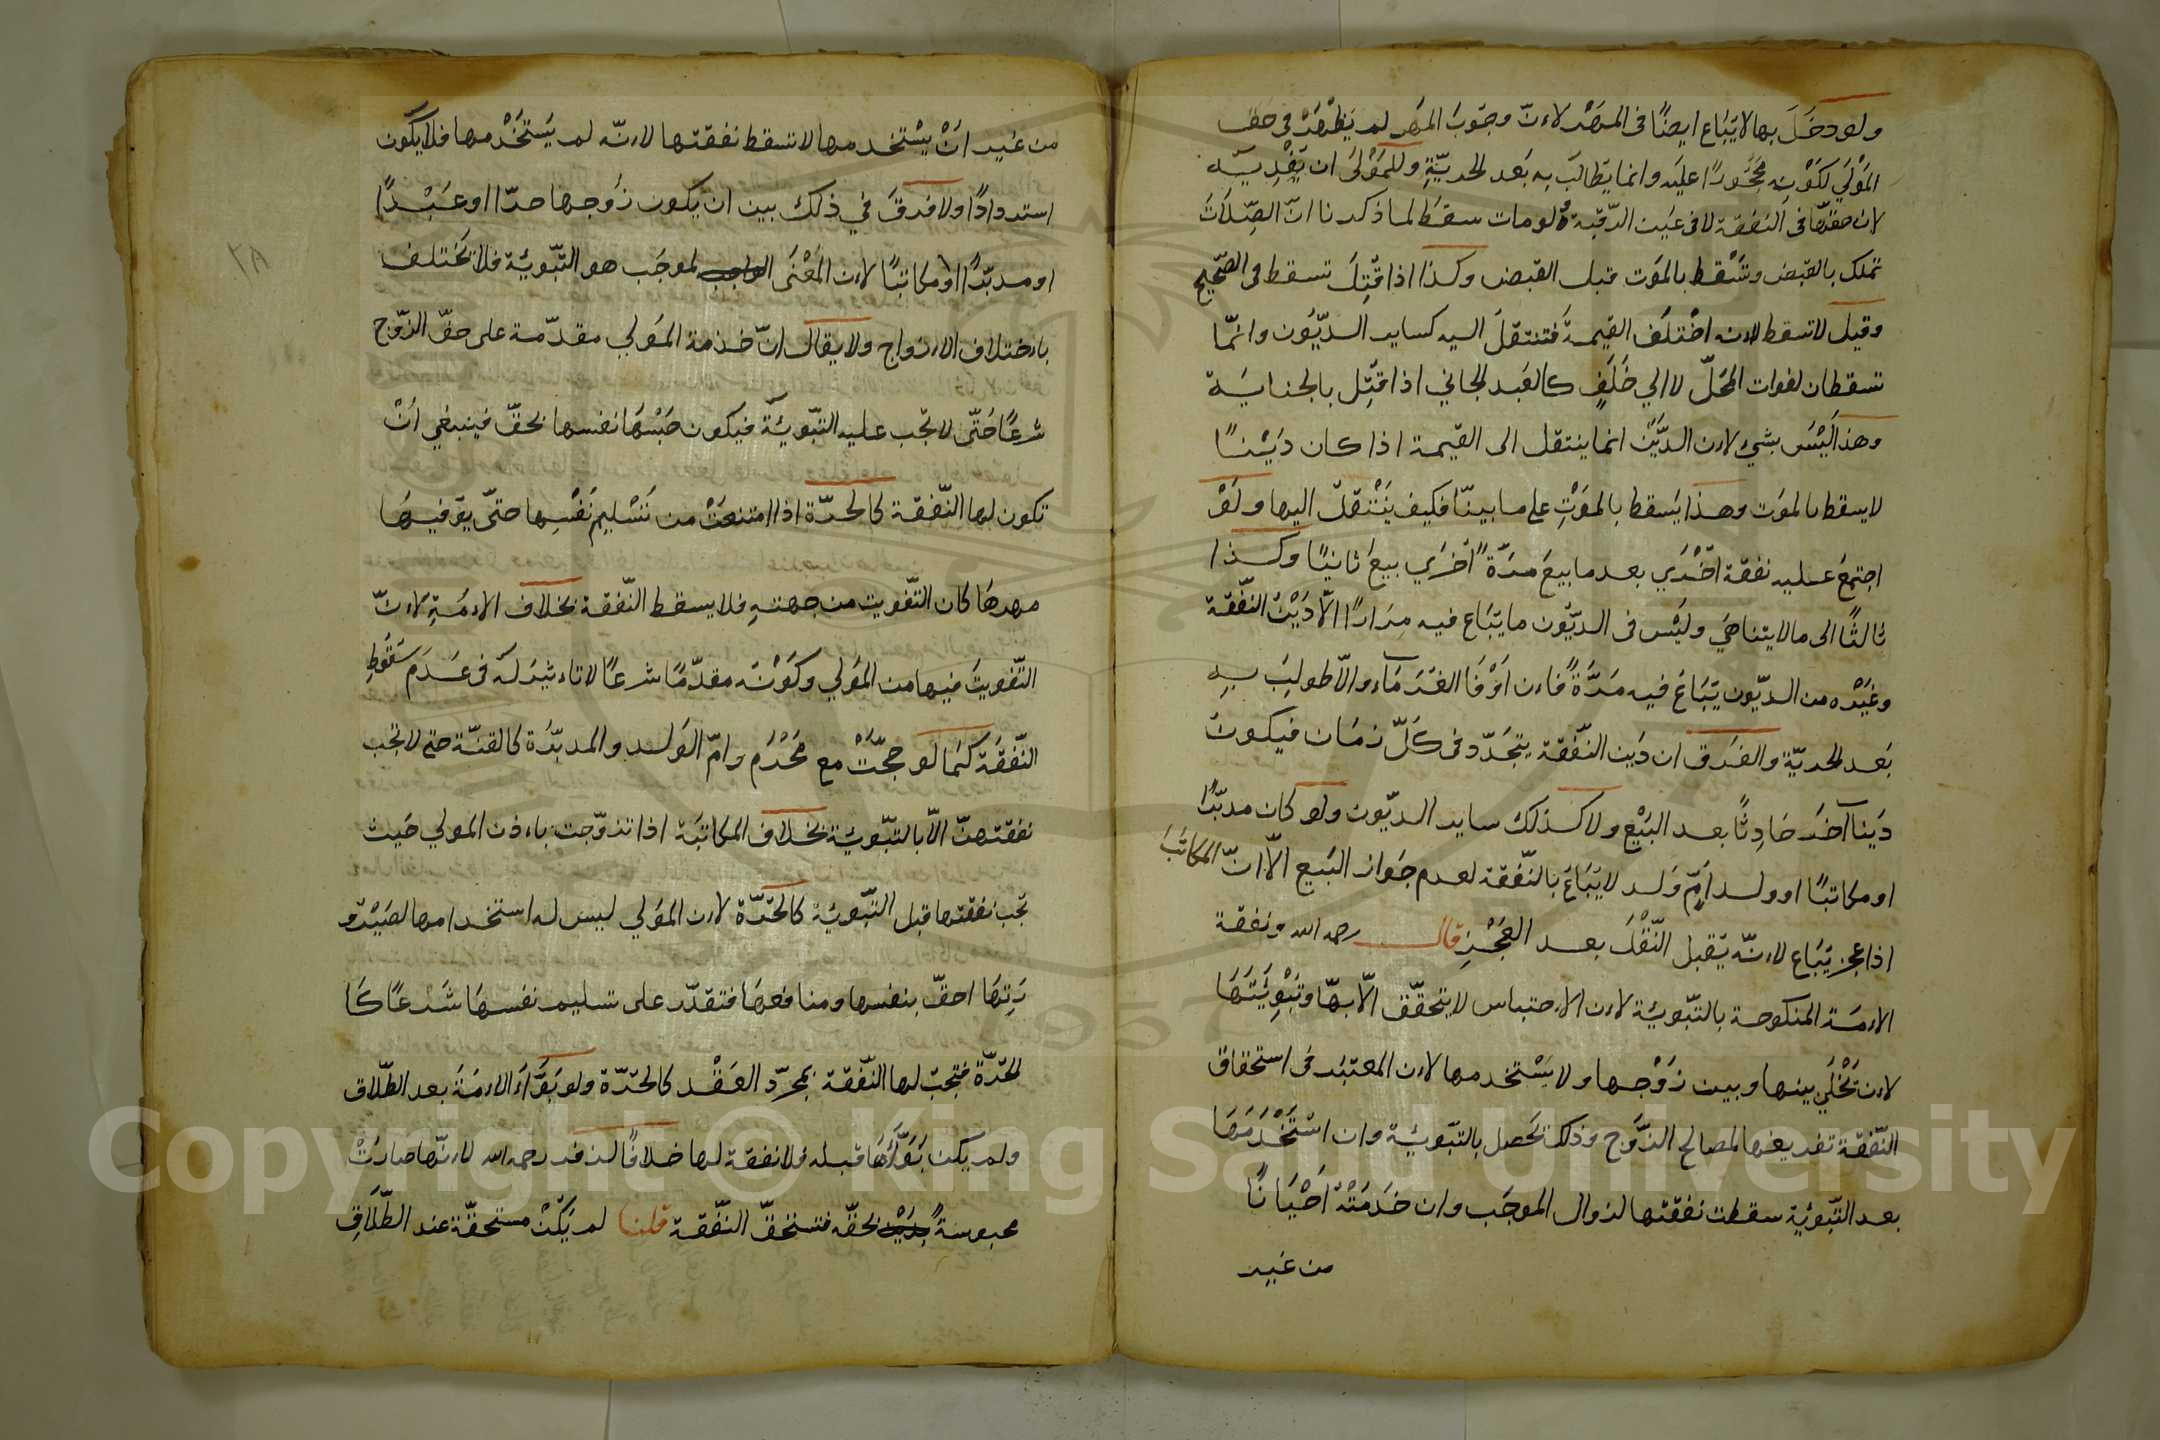 ولو دخل بها لا يباع ايضًا في المهر لان وجوب المهر لم يظهر في حق
المولي لكونه محجورًا عليه وانما يطالب به بعد الحرية وللمولى ان يفديه
لان حقها في النفقة لا في عين الرقبة ولو مات سقط لما ذكرنا ان الصلات
تملك بالقبض وتسقط بالموت قبل القبض وكذا اذا قتل تسقط في الصحيح
وقيل لا تسقط لانه اختلف القيمة فتنتقل اليه كساير الديون وانما
تسقطان لفوات المحل لا الي خلف كالعبد الجاني اذا قتل بالجناية
وهذا ليس بشيء لان الدين انما ينتقل الى القيمة اذا كان دينًا
لا يسقط بالموت وهذا يسقط بالموت على ما بينا فكيف ينتقل اليها ولو
اجتمع عليه نفقة اخري بعد ما بيع مرة اخري بيع ثانيًا وكذا
ثالثًا الى ما لا يتناهي وليس في الديون ما يباع فيه مرارًا الا دين النفقة
وغيره من الديون يباع فيه مرة فان اوفا الغرماء والا طولب به
بعد الحرية والفرق ان دين النفقة يتجدد في كل زمان فيكون
دينا آخر حادثًا بعد البيع ولا كذلك ساير الديون ولو كان مدبرًا
او مكاتبًا او ولد ام ولد لا يباع بالنفقة لعدم جواز البيع الا ان المكاتب
اذا عجز يباع لانه يقبل النقل بعد العجز قال رحمه الله ونفقة
الامة المنكوحة بالتبوية لان الاحتباس لا يتحقق الا بها وتبويتها
لان تخلي بينها وبين زوجها ولا يستخدمها لان المعتبر في استحقاق
النفقة تفريغها لمصالح الزوج وذلك تحصل بالتبوية وان استخدمها
بعد التبوية سقطت نفقتها لزوال الموجب وان خدمته احيانًا
من غير
٢٨
من غير ان يستخدمها لا تسقط نفقتها لانه لم يستخدمها فلا يكون
استردادًا ولا فرق في ذلك بين ان يكون زوجها حرا او عبدًا
او مدبرًا او مكاتبًا لان المعنى لموجب هو التبوية فلا تختلف
باختلاف الازواج ولا يقال ان خدمة المولي مقدمة على حق الزوج
شرعًا حتى لا تجب عليه التبوية فيكون حبسها نفسها بحق فينبغي ان
تكون لها النفقة كالحرة اذا امتنعت من تسليم نفسها حتى يوفيها
مهرها كان التفويت من جهته فلا يسقط النفقة بخلاف الامة لان
التفويت فيها من المولي وكونه مقدمًا شرعًا لا تاثير له في عدم سقوط
النفقة كما لو حجت مع محرم وام الولد والمدبرة كالقنة حتى لا تجب
نفقتهن الا بالتبوية بخلاف المكاتبة اذا تزوجت باذن المولي حيث
تجب نفقتها قبل التبوية كالحرة لان المولي ليس له استخدامها لصيرو
رتها احق بنفسها ومنافعها فتقدر على تسليم نفسها شرعًا كا
لحرة فتجب لها النفقة بمجرد العقد كالحرة ولو بواء الامة بعد الطلاق
ولم يكن بواءها قبله فلا نفقة لها خلافًا لزفر رحمه الله لانها صارت
محبوسة بحقه فتستحق النفقة قلنا لم يكن مستحقة عند الطلاق
Copyright © King Saud University
1957